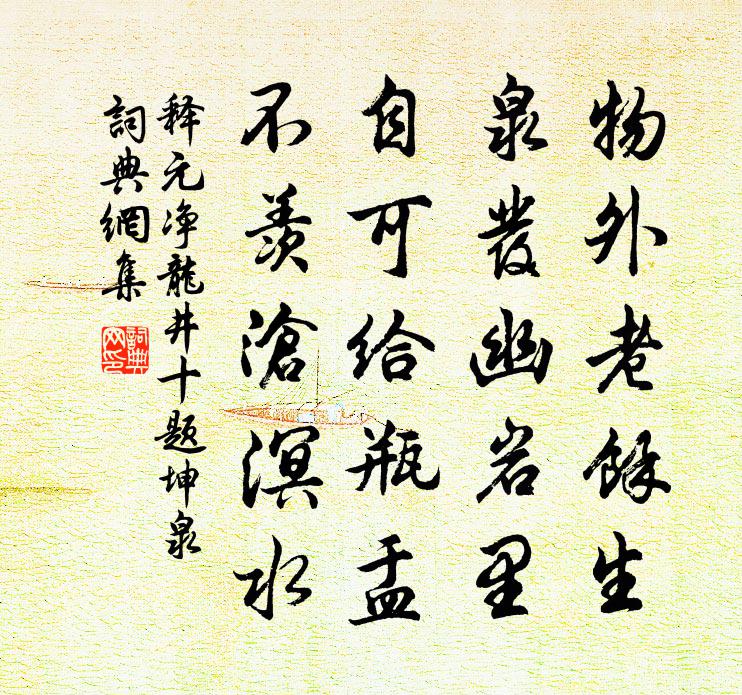 物外老餘生
泉發幽岩里
自可給瓶盂
不羨滄溟水
释元净龍井十题坤泉
詞典網集
詞典
网印